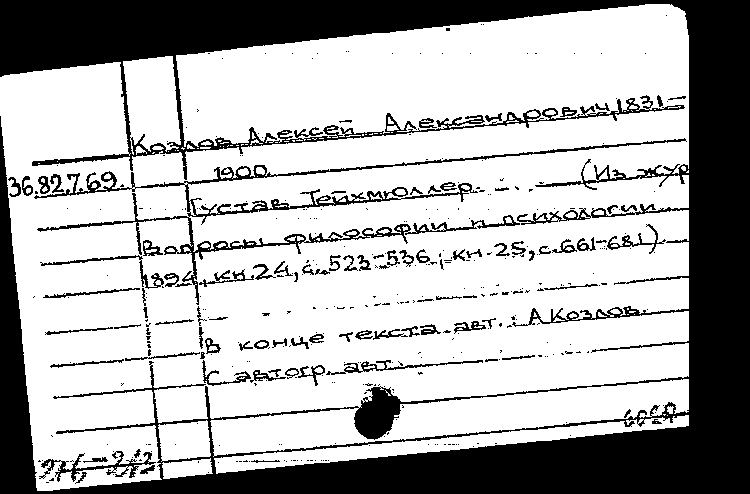 Козлов, Алексей Александрович, 1831-
36.82.7.69. 1900.
Густав Тейхмюллер. ... — (Из жур
Вопросы философии и психологии
1894, кн. 24, с. 523-536; кн. 25, с. 661-681).
В конце текста авт.: А Козлов.
С автогр. авт.